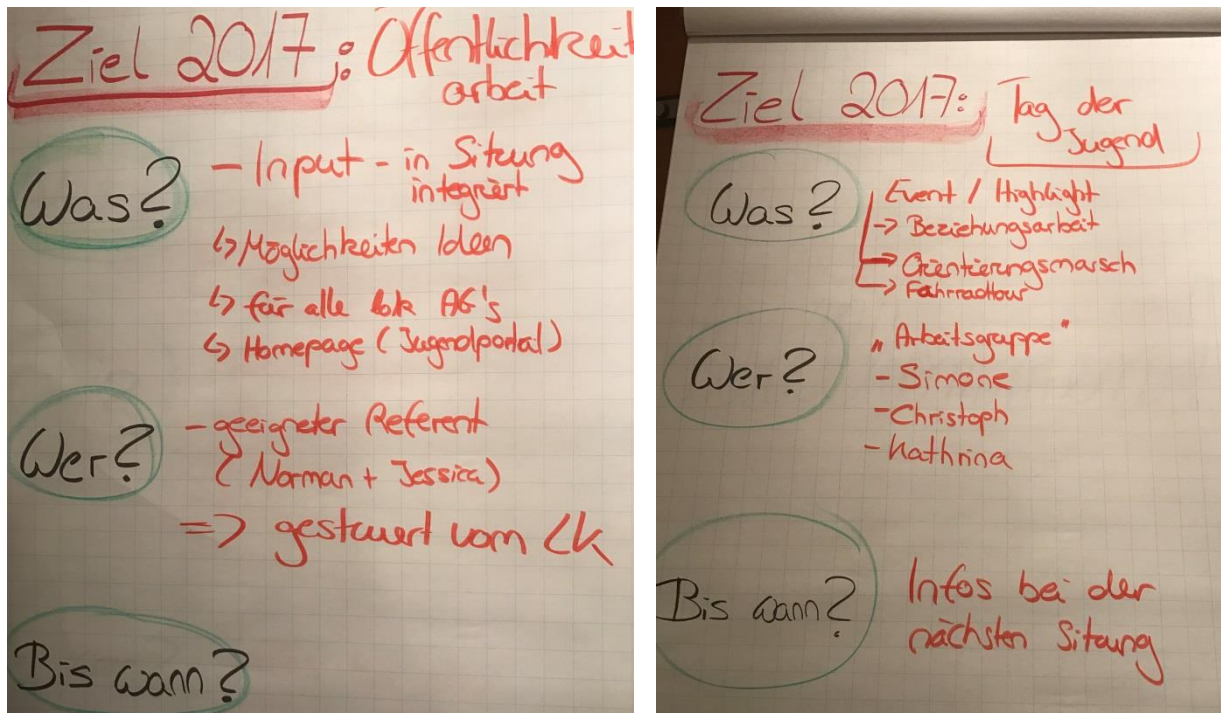 Ziel 2017: Öffentlichkeit
arbeit
Was?
- Input - in Sitzung
integriert
↳ Möglichkeiten Ideen
↳ für alle lok AG's
↳ Homepage (Jugendportal)
Wer?
- geeigneter Referent
(Norman + Jessica)
=> gesteuert vom LK
Bis wann?
Ziel 2017: Tag der
Jugend
Was?
Event / Highlight
-> Beziehungsarbeit
-> Orientierungsmarsch
-> Fahrradtour
Wer?
„Arbeitsgruppe"
- Simone
- Christoph
- Kathrina
Bis wann?
Infos bei der
nächsten Sitzung